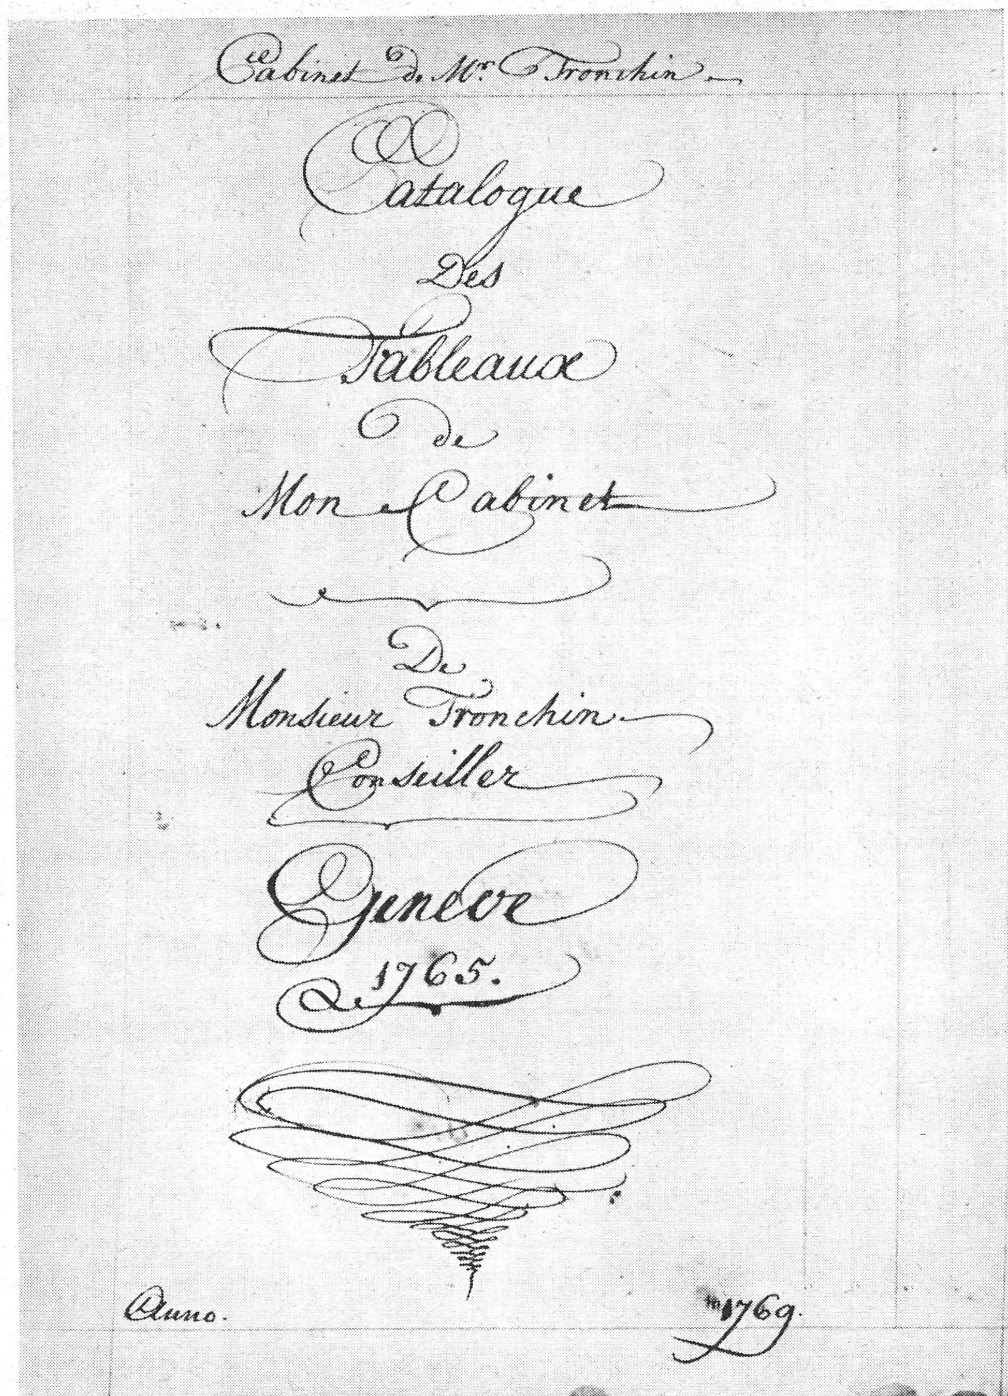 Cabinet de Mr. Tronchin
Catalogue
Des
Tableaux
de
Mon Cabinet
De
Monsieur Tronchin
Conseiller
Geneve
1765.
Anno. 1769.